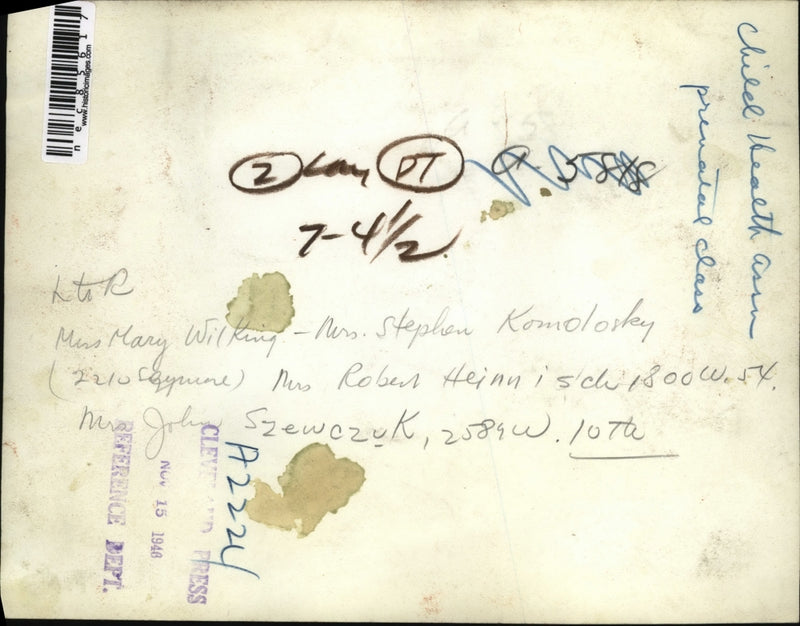 nec85617
www.historicimages.com
Child Health Assn
prenatal class
2 Col DT
7-4 1/2
L to R
Miss Mary Wilking - Mrs. Stephen Komolosky
(2210 Seymore) Mrs Robert Heinnisch, 1800 W. 54.
Mrs John Szewczuk, 2589 W. 10th
A2224
CLEVELAND PRESS
NOV 15 1948
REFERENCE DEPT.